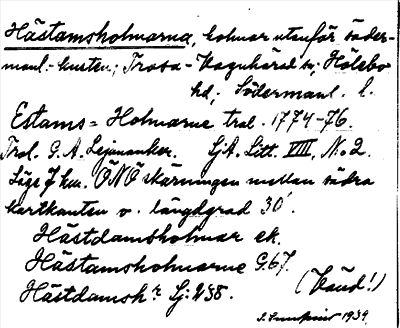 Hästamsholmarna, holmar utanför söder-
manl. kusten; Trosa-Vagnhärad sn; Hölebo
hd; Södermanl. l.
Estams=Holmarne tral. 1774-76.
Trol. G. A. Lejonanker. SjA. Litt. VIII, No 2.
Ligs 7 km. ÖNÖ skärningen mellan södra
kartkanten o. längdgrad 30'.
Hästdamsholmar ek.
Hästamsholmarne G.67.
Hästdamsh:r Sj. 238.
(Vänd!)
1939.